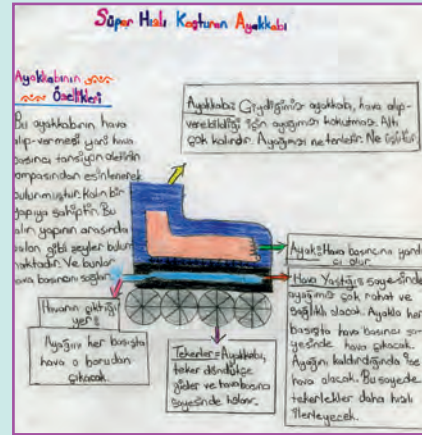 Süper Hızlı Koşturan Ayakkabı
Ayakkabının
Özellikleri
Bu ayakkabının hava
alıp-vermesi yani hava
basıncı tansiyon aletinin
pompasından esinlenerek
bulunmuştur. Kalın bir
yapıya sahiptir. Bu
kalın yapının arasında
balon gibi şeyler bulun
maktadır. Ve bunlar
hava basıncını sağlar.
Ayakkabı: Giydiğimiz ayakkabı, hava alıp-
verebildiği için ayağımızı kokutmaz. Altı
çok kalındır. Ayağımızı ne terletir. Ne üşütür.
Ayak: Hava basıncına yardım
cı olur.
Hava Yastığı: sayesinde
ayağımız çok rahat ve
sağlıklı olacak. Ayakla her
basışta hava basıncı sa-
yesinde hava çıkacak.
Ayağını kaldırdığında ise
hava alacak. Bu sayede
tekerlekler daha hızlı
ilerleyecek.
Havanın çıktığı
yer:
Ayağını her basışta
hava o borudan
çıkacak.
Tekerler = Ayakkabı,
teker döndükçe
gider ve hava basıncı
sayesinde